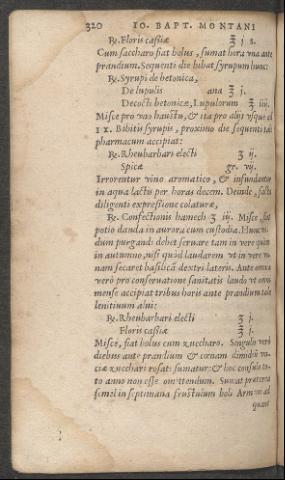 320 IO. BAPT. MONTANI
℞. Floris cassiæ ℥ j s.
Cum saccharo fiat bolus, sumat hora vna ante
prandium. Sequenti die bibat syrupum hunc:
℞. Syrupi de betonica,
De lupulis ana ℥ j.
Decocti betonicæ, Lupulorum ℥ iiij.
Misce pro vno haustu, & ita pro alijs vsque ad
IX. Bibitis syrupis, proximo die sequenti tale
pharmacum accipiat:
℞. Rheubarbari electi ʒ ij.
Spicæ gr. vij.
Irrorentur vino aromatico, & infundantur
in aqua lactis per horas decem. Deinde, facta
diligenti expressione colaturæ,
℞. Confectionis hamech ʒ iij. Misce, fiat
potio danda in aurora cum custodia. Hunc
dium purgandi debet seruare tam in vere quàm
in autumno, nisi quòd laudarem vt in vere
nam secaret basilicā dextri lateris. Ante omnia
verò pro conseruatione sanitatis laudo vt omni
mense accipiat tribus horis ante prandium tale
lenitiuum alui:
℞. Rheubarbari electi ʒ j.
Floris cassiæ ℥ j.
Misce, fiat bolus cum zuccharo. Singulis verò
diebus ante prandium & cœnam dimidiū
ciæ zucchari rosati sumatur: & hoc consulo
to anno non esse omittendum. Sumat præterea
semel in septimana frustulum boli Armeni ad
quant